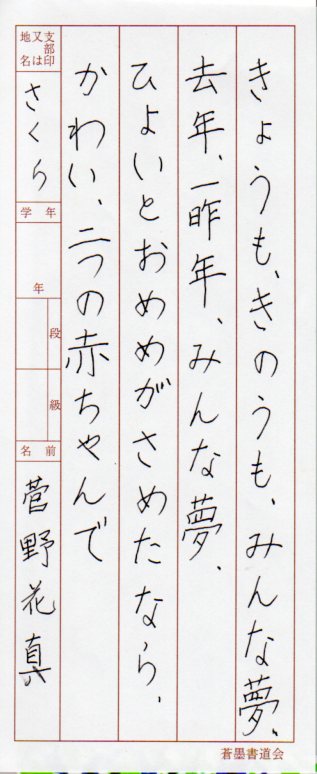 きょうも、きのうも、みんな夢、
去年、一昨年、みんな夢、
ひよいとおめめがさめたなら、
かわい、二つの赤ちゃんで
支部印
又は
地名
さくら
学年
年
段
級
名前
菅野花真
蒼墨書道会